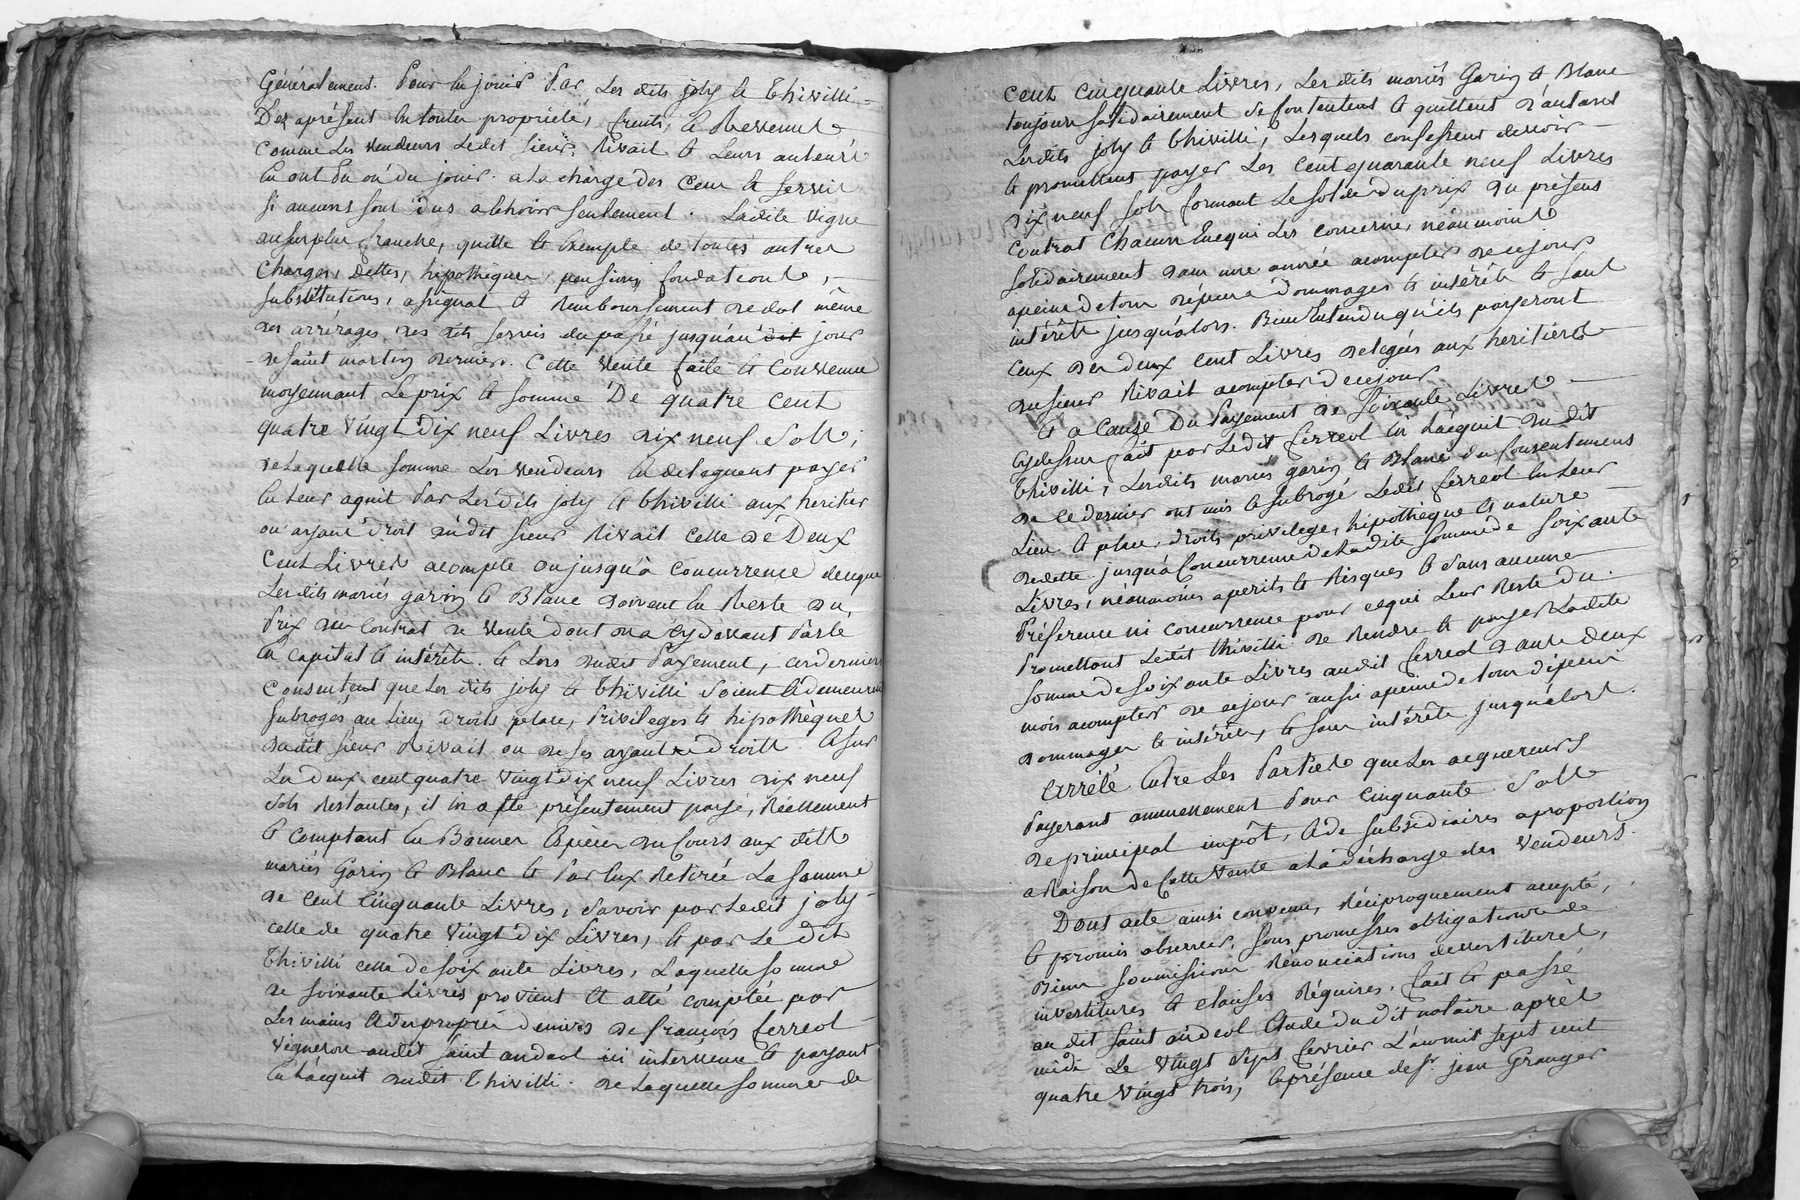 Généralement. Pour en jouir Par Les dits joly & Thivilli
Dez aprésent En toutes propriétés, fruits, & Revenus
Comme Les vendeurs Ledit sieur Rivait & Leurs auteurs
En ont Eu ou dû jouir. a La charge des Cens & servis
si aucuns sont dus a Echoir seulement. Ladite vigne
au surplus franche, quitte & Exempte de toutes autres
Charges, dettes, hipothèques, pensions, fondations,
substitutions, asignat & Remboursement de dot même
des arrérages, des dits servis du passé jusqu'au dit jour
de saint martin dernier. Cette vente faite & Convenue
moyennant Le prix & somme De quatre cent
quatre vingt Dix neuf Livres dix neuf Sols;
de Laquelle somme Les vendeurs En délèguent payer
En Leur aquit Par Lesdits joly & thivilli aux heritier
ou ayant droit dudit sieur Rivait celle de Deux
Cent Livres acompte ou jusqu'à concurrence de ce que
Lesdits mariés garin & Blanc doivent En Reste du
Prix du Contrat de vente dont on a Cydevant Parlé
En capital & intérêts. & Lors dudit Payement, ces derniers
Consentent que Les dits joly & Thivilli soient & demeurent
subrogés au Lieu, droits place, Privileges & hipothèques
dudit sieur Rivait ou de ses ayant droits. A sur
Les deux cent quatre vingt dix neuf Livres dix neuf
Sols Restantes, il En a été présentement payé, Réellement
& Comptant En Bonnes Espèces du Cours aux dits
mariés Garin & Blanc & Par Eux Retirée La somme
de cent Cinquante Livres, Savoir par Ledit joly
celle de quatre vingt dix Livres, & par Le dit
Thivilli celle de soixante Livres, Laquelle somme
de soixante Livres provient & a été comptée par
Les mains & des propres deniers de françois ferreol
vigneron audit saint andeol ici intervenu & payant
En L'acquit dudit Thivilli. de Laquelle somme de
cent cinquante Livres, Lesdits mariés Garin & Blanc
toujours solidairement se contentent & quittent d'autant
Lesdits joly & thivilli, Lesquels confessent devoir
& promettent payer Les cent quarante neuf Livres
dix neuf sols formant Le solde du prix du présent
Contrat Chacun En ce qui Les concerne, néanmoins
solidairement dans une année acompter de ce jour
apeine de tous dépens dommages & intérêts & sans
intérêts jusqu'alors. Bien Entendu qu'ils payeront
Ceux des deux cent Livres deleguées aux heritiers
du sieur Rivait acompter de ce jour
& a Cause Du Payement de soixante Livres
cy dessus fait par Ledit ferreol En L'acquit du dit
thivilli, Lesdits mariés garin & Blanc du Consentement
de ce dernier ont mis & subrogé Ledit ferreol En Leur
Lieu & place, droits privilege, hipothèque & nature
de dette jusqu'à Concurrence de Ladite somme de soixante
Livres, néanmoins a perils & Risques & sans aucune
Préference ni concurrence pour ce qui Leur Reste du.
Promettant Ledit thivilli de Rendre & payer Ladite
somme de soixante Livres audit ferreol dans deux
mois acompter de ce jour aussi apeine de tous dépens
dommages & intérêts, & sans intérêts jusqu'alors.
Arrêté Entre Les Parties que Les acquereurs
Payeront annuellement Pour Cinquante Sols
de principal impôt, & de subsidiaires a proportion
a Raison de Cette vente a La décharge des vendeurs.
Dont acte ainsi convenu, Réciproquement accepté,
& promis observer, sous promesses obligations de
Biens soumissions Renonciations
investitures & clauses Réquises. fait & passé
au dit saint andeol Etude du dit notaire après
midi Le vingt sept fevrier L'an mil sept cent
quatre vingt trois, En présence de sr. jean Granger